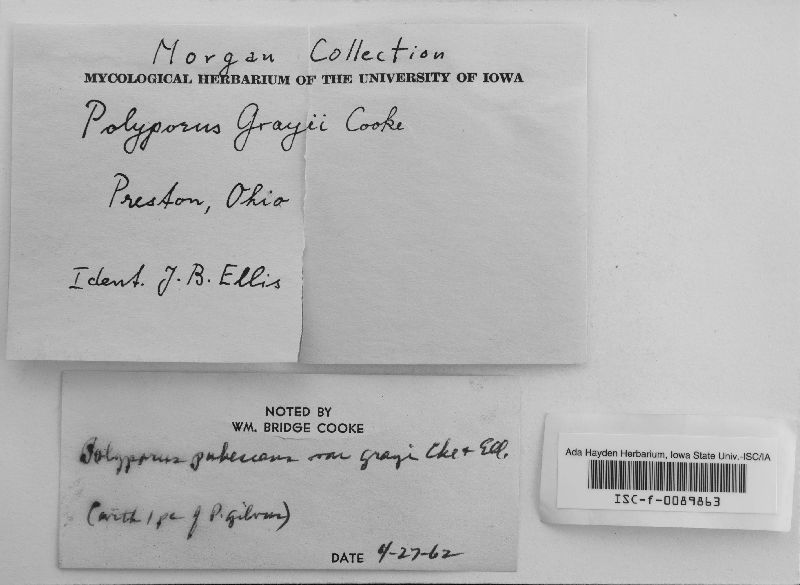 Morgan Collection
MYCOLOGICAL HERBARIUM OF THE UNIVERSITY OF IOWA
Polyporus Grayii Cooke
Preston, Ohio
Ident. J.B. Ellis
NOTED BY
WM. BRIDGE COOKE
Polyporus pubescens var grayi Cke + Ell.
(with 1 pc of P. gilvus)
DATE 4-27-62
Ada Hayden Herbarium, Iowa State Univ.-ISC/IA
ISC-f-0089863